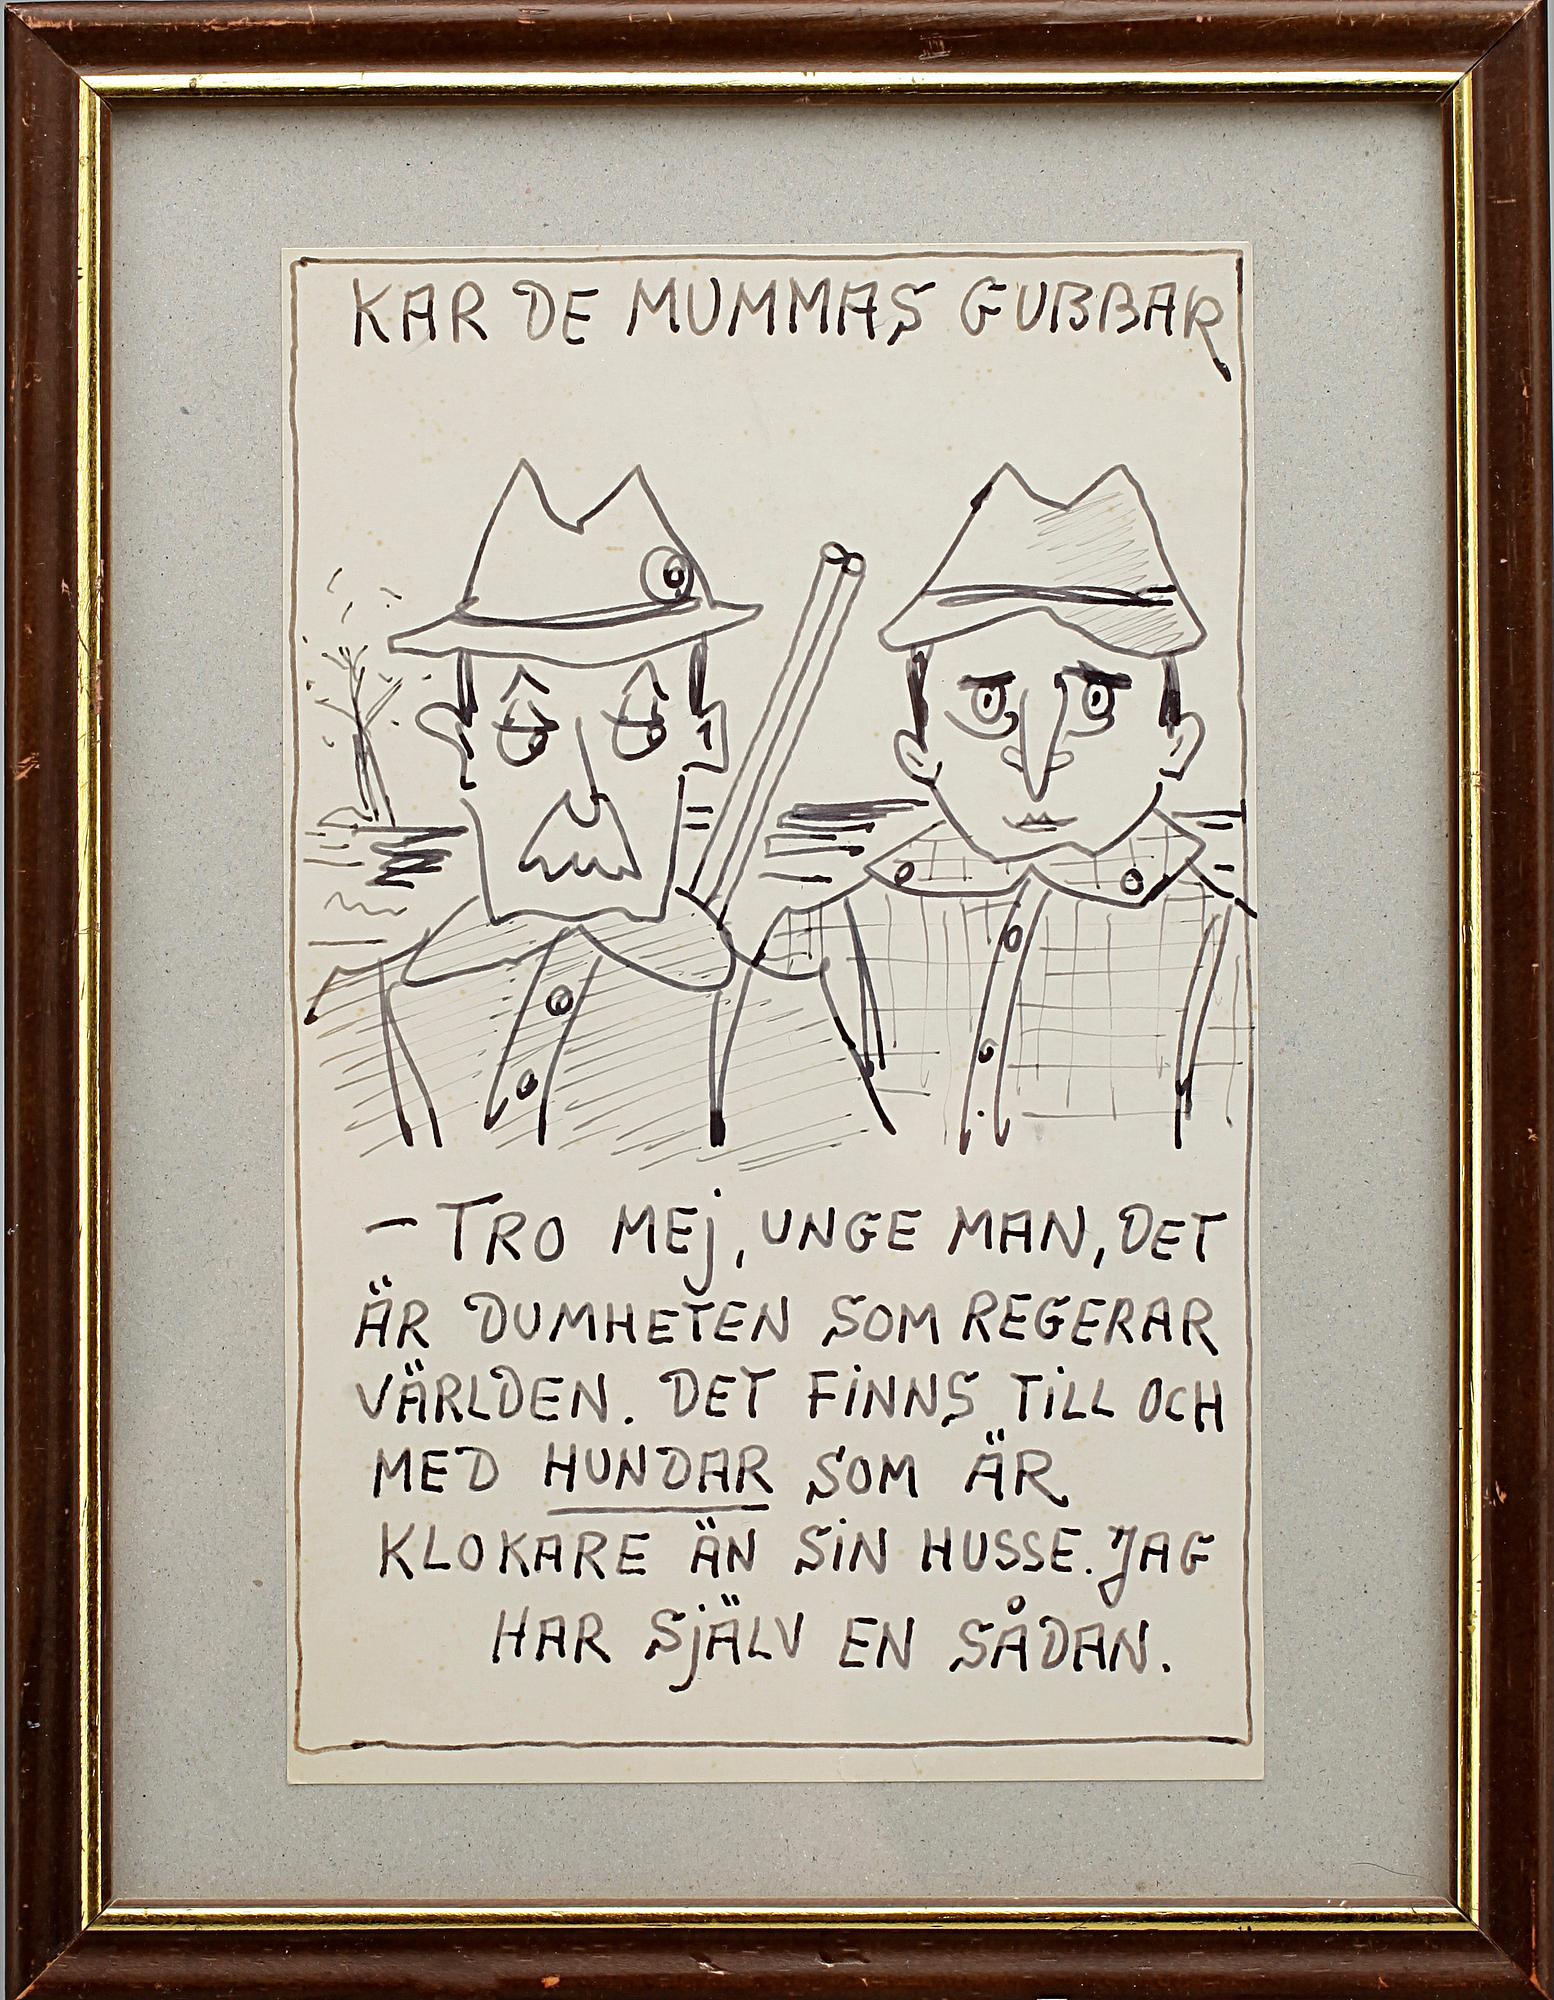 KAR DE MUMMAS GUBBAR
– TRO MEJ, UNGE MAN, DET
ÄR DUMHETEN SOM REGERAR
VÄRLDEN. DET FINNS TILL OCH
MED HUNDAR SOM ÄR
KLOKARE ÄN SIN HUSSE. JAG
HAR SJÄLV EN SÅDAN.